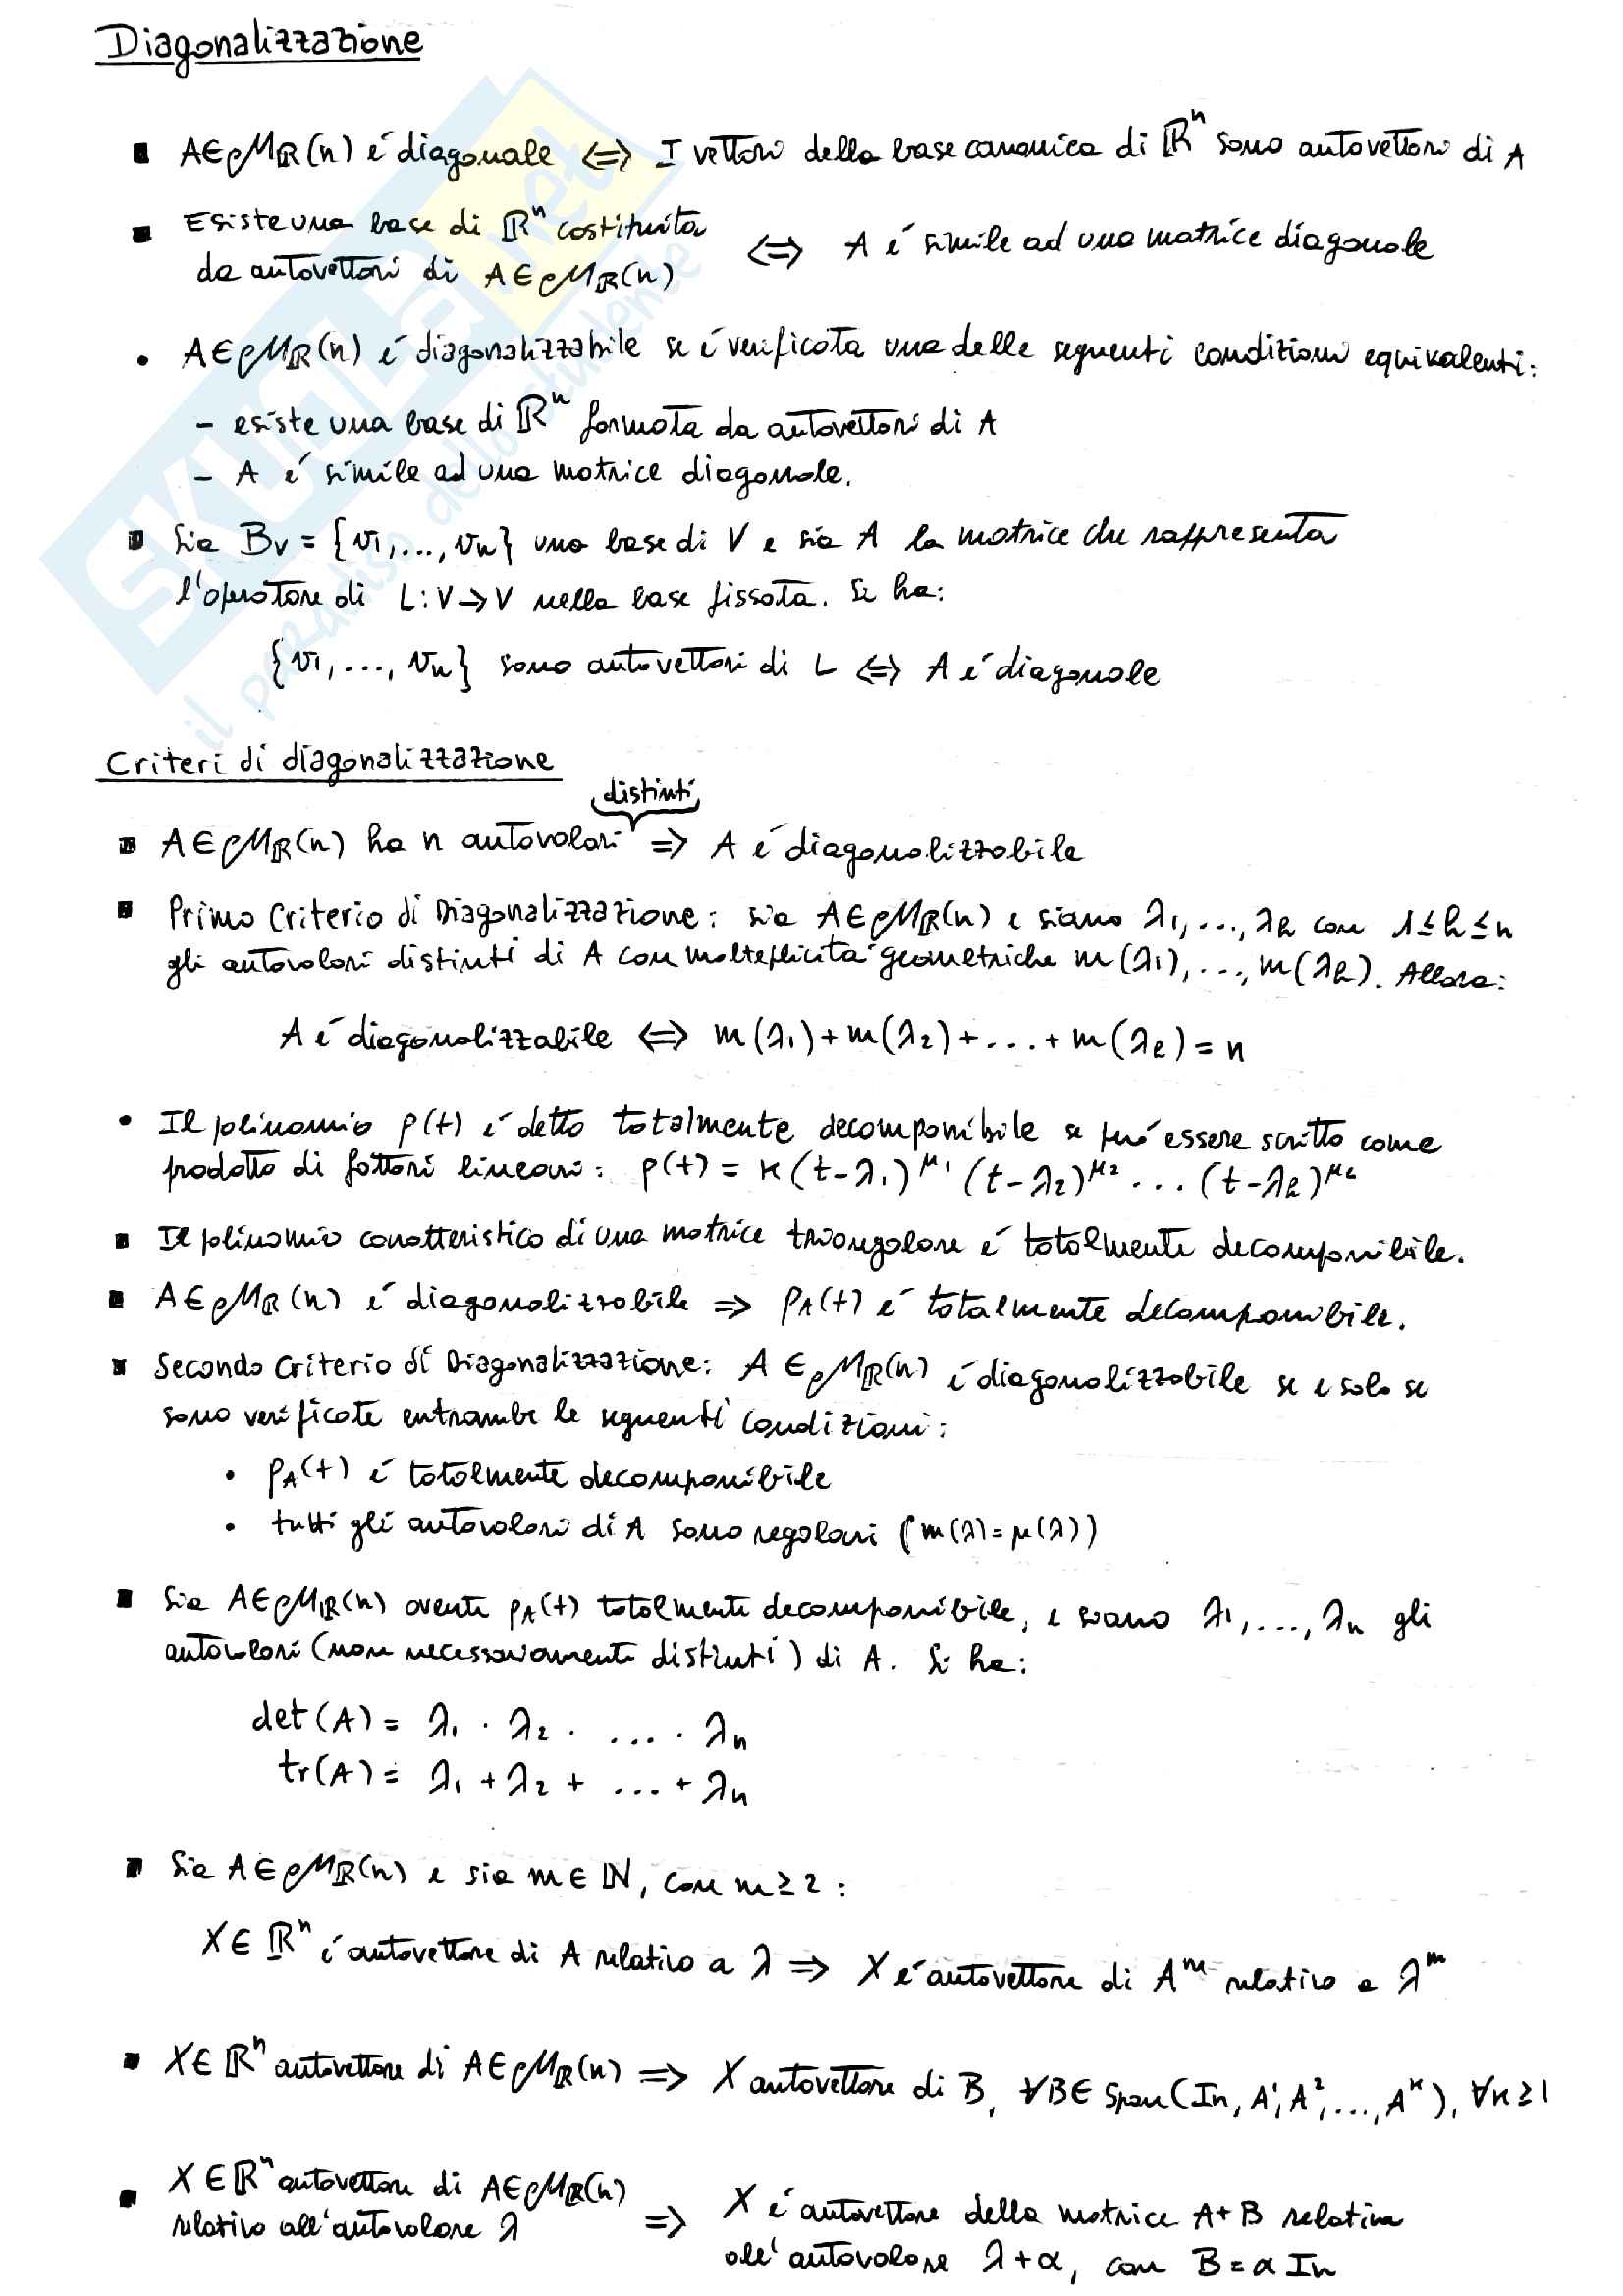 Diagonalizzazione
A∈M_ℝ(n) é diagonale ⟺ I vettori della base canonica di ℝⁿ sono autovettori di A
Esiste una base di ℝⁿ costituita
da autovettori di A∈M_ℝ(n) ⟺ A é simile ad una matrice diagonale
• A∈M_ℝ(n) é diagonalizzabile se é verificata una delle seguenti condizioni equivalenti:
- esiste una base di ℝⁿ formata da autovettori di A
- A é simile ad una matrice diagonale.
Sia Bv = {v1, ..., vn} una base di V e sia A la matrice che rappresenta
l'operatore di L: V→V nella base fissata. Si ha:
{v1, ..., vn} sono autovettori di L ⟺ A é diagonale
Criteri di diagonalizzazione
distinti
A∈M_ℝ(n) ha n autovalori ⟹ A é diagonalizzabile
Primo Criterio di Diagonalizzazione: sia A∈M_ℝ(n) e siano λ1, ..., λh con 1≤h≤n
gli autovalori distinti di A con molteplicitá geometriche m(λ1), ..., m(λh). Allora:
A é diagonalizzabile ⟺ m(λ1)+m(λ2)+...+m(λh)=n
• Il polinomio p(t) é detto totalmente decomponibile se puó essere scritto come
prodotto di fattori lineari: p(t) = k(t-λ1)^μ1 (t-λ2)^μ2 ... (t-λh)^μh
Il polinomio caratteristico di una matrice triangolare é totalmente decomponibile.
A∈M_ℝ(n) é diagonalizzabile ⟹ pA(t) é totalmente decomponibile.
Secondo Criterio di Diagonalizzazione: A∈M_ℝ(n) é diagonalizzabile se e solo se
sono verificate entrambe le seguenti condizioni:
• pA(t) é totalmente decomponibile
• tutti gli autovalori di A sono regolari (m(λ)=μ(λ))
Sia A∈M_ℝ(n) avente pA(t) totalmente decomponibile, e siano λ1, ..., λn gli
autovalori (non necessariamente distinti) di A. Si ha:
det(A) = λ1 · λ2 · .... · λn
tr(A) = λ1 + λ2 + ... + λn
Sia A∈M_ℝ(n) e sia m∈ℕ, con m≥2:
X∈ℝⁿ é autovettore di A relativo a λ ⟹ X é autovettore di A^m relativo a λ^m
X∈ℝⁿ autovettore di A∈M_ℝ(n) ⟹ X autovettore di B, ∀B∈Span(In, A¹, A², ..., A^k), ∀k≥1
X∈ℝⁿ autovettore di A∈M_ℝ(n)
relativo all'autovalore λ ⟹ X é autovettore della matrice A+B relativa
all'autovalore λ+α, con B=αIn
SKUOLA.net
il paradiso dello studente